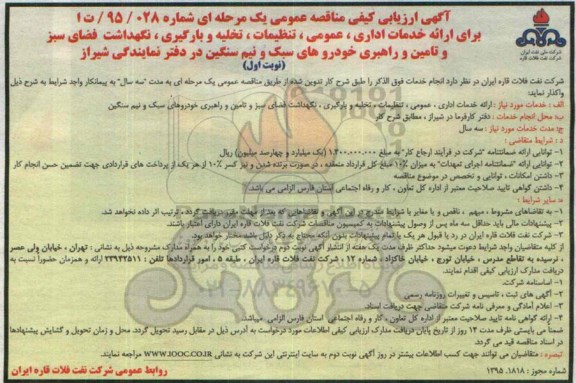 آگهی ارزیابی کیفی مناقصه عمومی یک مرحله ای شماره ۰۲۸ / ۹۵ / ت ا
برای ارائه خدمات اداری ، عمومی ، تنظیمات ، تخلیه و بارگیری ، نگهداشت فضای سبز
و تامین و راهبری خودرو های سبک و نیم سنگین در دفتر نمایندگی شیراز
(نوبت اول)
شرکت ملی نفت ایران
شرکت نفت فلات قاره ایران
شرکت نفت فلات قاره ایران در نظر دارد انجام خدمات فوق الذکر را طبق شرح کار تدوین شده از طریق مناقصه عمومی یک مرحله ای به مدت "سه سال" به پیمانکار واجد شرایط به شرح ذیل
واگذار نماید:
الف : خدمات مورد نیاز : ارائه خدمات اداری ، عمومی ، تنظیمات ، تخلیه و بارگیری ، نگهداشت فضای سبز و تامین و راهبری خودروهای سبک و نیم سنگین
ب: محل انجام خدمات : دفتر کارفرما در شیراز ، مطابق شرح کار
ج: مدت خدمات مورد نیاز : سه سال
د : شرایط متقاضی :
۱- توانایی ارائه ضمانتنامه "شرکت در فرآیند ارجاع کار" به مبلغ ۱,۴۰۰,۰۰۰,۰۰۰ (یک میلیارد و چهارصد میلیون) ریال
۲- توانایی ارائه "ضمانتنامه اجرای تعهدات" به میزان ۱۰٪ مبلغ کل قرارداد منعقده ، در صورت برنده شدن و نیز کسر ۱۰٪ از هر یک از پرداخت های قراردادی جهت تضمین حسن انجام کار
۳- داشتن امکانات ، توانایی و تخصص در موضوع مناقصه
۴- داشتن گواهی تایید صلاحیت معتبر از اداره کل تعاون ، کار و رفاه اجتماعی استان فارس الزامی می باشد.
ه: سایر شرایط :
۱- به تقاضاهای مشروط ، مبهم ، ناقص و یا مغایر با شرایط مندرج در این آگهی و تقاضاهایی که بعد از مهلت مقرر دریافت گردد ، ترتیب اثر داده نخواهد شد.
۲- پیشنهادات مالی باید حداقل سه ماه پس از وصول پیشنهادات به کمیسیون مناقصات شرکت نفت فلات قاره ایران دارای اعتبار باشند.
۳- شرکت نفت فلات قاره ایران در رد یا قبول هر یک یا تمام پیشنهادات بدون آنکه محتاج به ذکر دلیل باشد مختار خواهد بود.
از کلیه متقاضیان واجد شرایط دعوت میشود حداکثر ظرف مدت یک هفته از انتشار آگهی نوبت دوم درخواست کتبی خود را به همراه مدارک مشروحه ذیل به نشانی : تهران ، خیابان ولی عصر
، نرسیده به تقاطع مدرس ، خیابان تورج ، خیابان خاکزاد ، شماره ۱۲ ، شرکت نفت فلات قاره ایران ، طبقه ۵ ، امور قراردادها تلفن : ۲۳۹۴۲۵۱۱ ارائه و همزمان حضوراً نسبت به
دریافت مدارک ارزیابی کیفی اقدام نمایند.
۱- اساسنامه شرکت.
۲- آگهی های ثبت ، تاسیس و تغییرات روزنامه رسمی
۳- اعلام آمادگی و معرفی نامه شرکت متقاضی جهت دریافت اسناد.
۴- ارائه گواهی نامه تایید صلاحیت معتبر از اداره کل تعاون ، کار و رفاه اجتماعی استان فارس الزامی میباشد.
ضمناً می بایستی ظرف مدت ۱۴ روز از تاریخ پایان دریافت مدارک ارزیابی کیفی اطلاعات مورد درخواست به آدرس ذیل در مقابل رسید تحویل گردد. محل و زمان تحویل و گشایش پیشنهادها
در اسناد مناقصه قید می گردد.
تبصره : متقاضیان می توانند جهت کسب اطلاعات بیشتر در روز آگهی نوبت دوم به سایت اینترنتی این شرکت به نشانی WWW.IOOC.CO.IR مراجعه نمایند.
شماره مجوز : ۱۸۱۸ . ۱۳۹۵
روابط عمومی شرکت نفت فلات قاره ایران